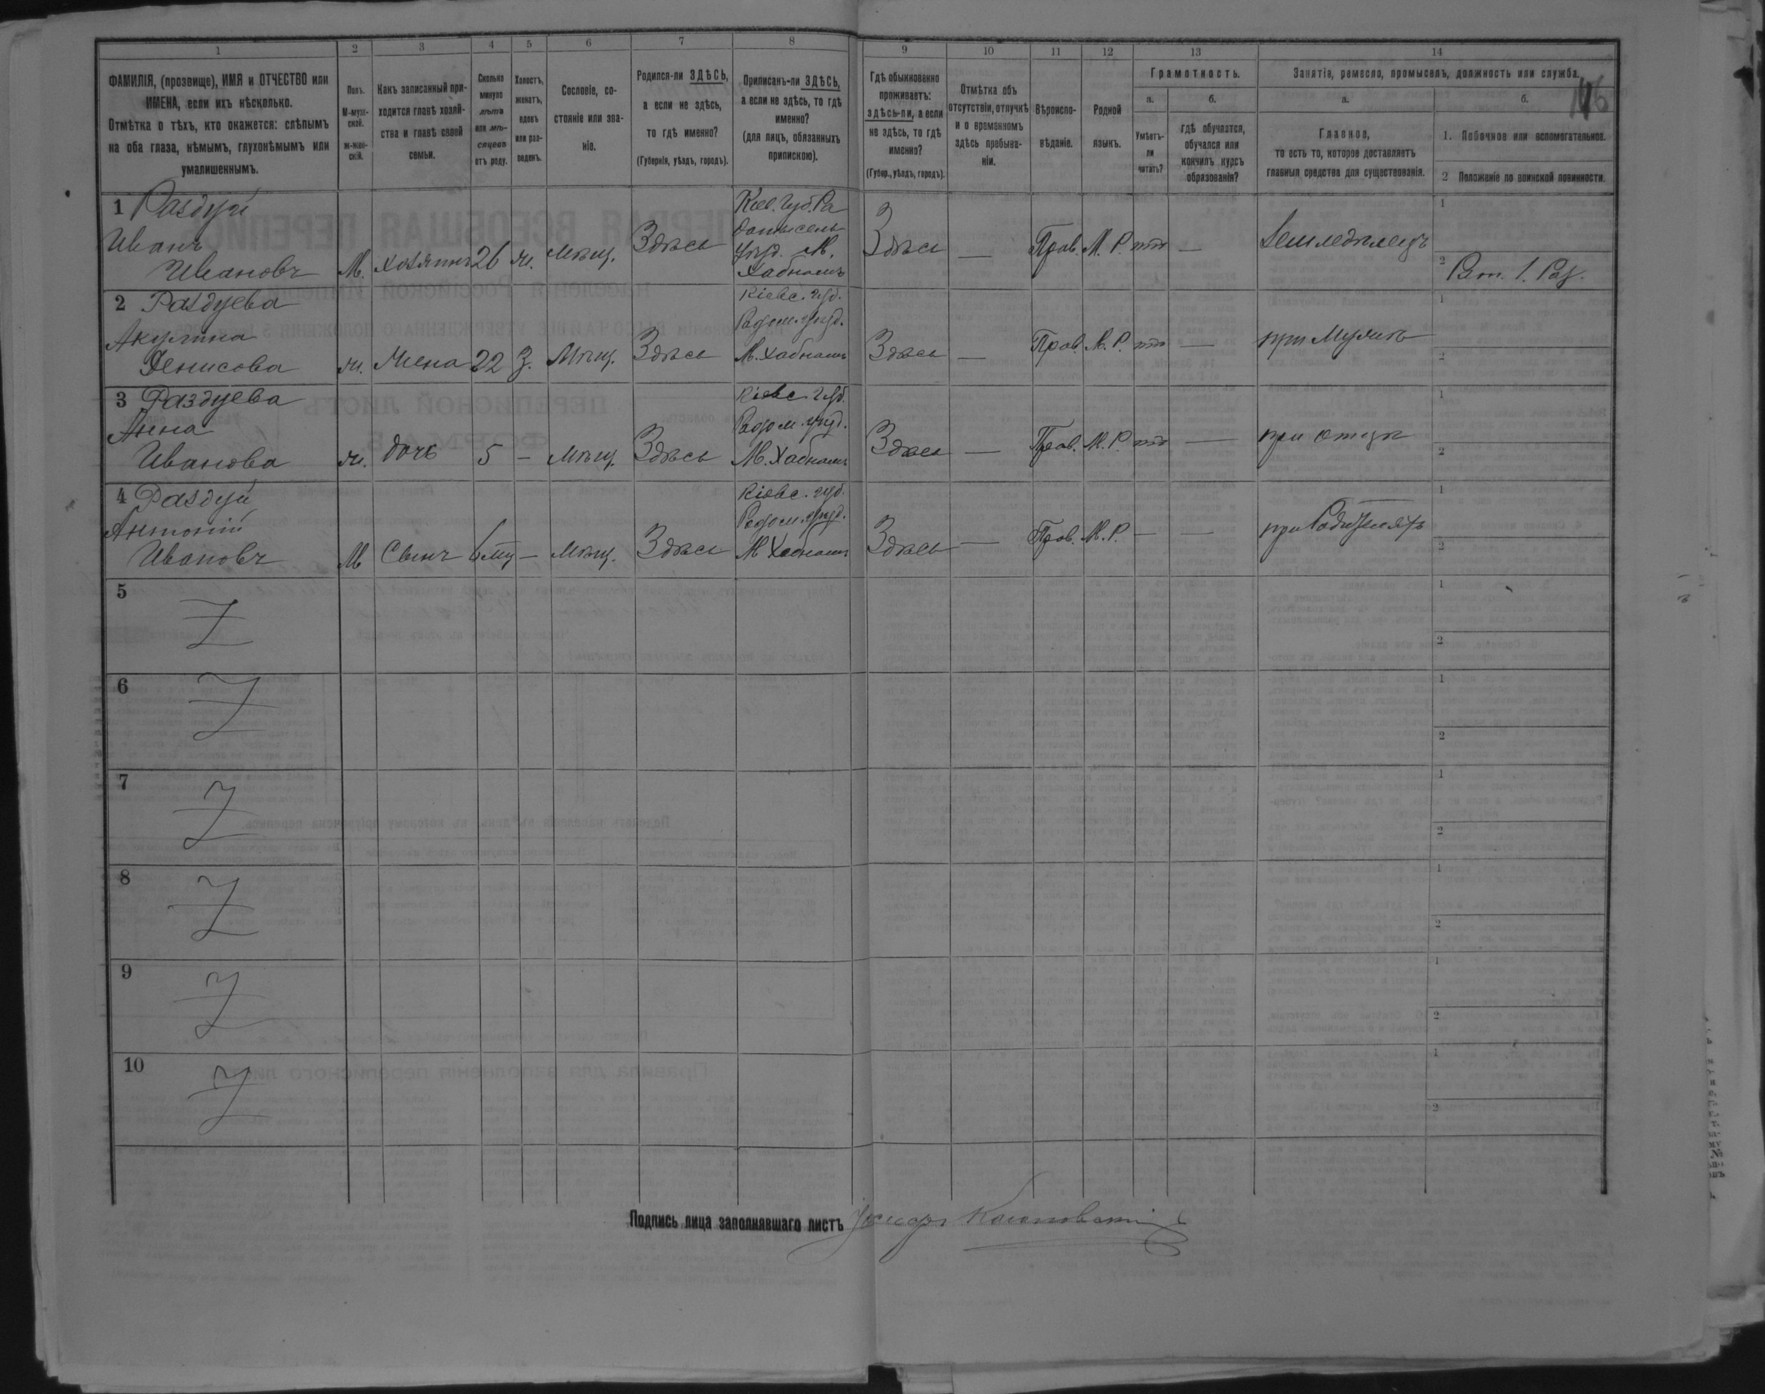 1 2 3 4 5 6 7 8 9 10 11 12 13 14
ФАМИЛІЯ, (прозвище), ИМЯ и ОТЧЕСТВО или
ИМЕНА, если ихъ нѣсколько.
Отмѣтка о тѣхъ, кто окажется: слѣпымъ
на оба глаза, нѣмымъ, глухонѣмымъ или
умалишеннымъ.
Полъ.
М-мужской.
Ж-женскій.
Какъ записанный при-
ходится главѣ хозяй-
ства и главѣ своей
семьи.
Сколько
минуло
лѣтъ
или мѣсяцевъ
отъ роду.
Холостъ,
женатъ,
вдовъ
или раз-
веденъ.
Сословіе, со-
стояніе или зва-
ніе.
Родился-ли ЗДѢСЬ,
а если не здѣсь,
то гдѣ именно?
(Губернія, уѣздъ, городъ).
Приписанъ-ли ЗДѢСЬ,
а если не здѣсь, то гдѣ
именно?
(для лицъ, обязанныхъ
припискою).
Гдѣ обыкновенно
проживаетъ:
здѣсь-ли, а если
не здѣсь, то гдѣ
именно?
(Губер., уѣздъ, городъ).
Отмѣтка объ
отсутствіи, отлучкѣ
и о временномъ
здѣсь пребыва-
ніи.
Вѣроиспо-
вѣданіе.
Родной
языкъ.
Грамотность.
а.
Умѣетъ-
ли
читать?
б.
гдѣ обучается,
обучался или
кончилъ курсъ
образованія?
Занятіе, ремесло, промыселъ, должность или служба.
а.
Главное,
то есть то, которое доставляетъ
главныя средства для существованія.
б.
1. Побочное или вспомогательное.
2 Положеніе по воинской повинности.
1 Раздуй
Иванъ
Ивановъ
М. хозяинъ 26 ж. мѣщ. Здѣсь
Кіев. Губ. Ра
домысель
уѣзд. М.
Хабномъ
Здѣсь — Прав. М. Р. нѣтъ — Земледѣлецъ
1
2 Рат. 1. Раз.
2 Раздуева
Акулина
Денисова
ж. Жена 22 З. Мѣщ. Здѣсь
Кіевс. губ.
Радом. уѣзд.
М. Хабномъ
Здѣсь — Прав. М. Р. нѣтъ — при Мужѣ
1
2
3 Раздуева
Анна
Иванова
ж. дочь 5 — Мѣщ. Здѣсь
Кіевс. губ.
Радом. уѣзд.
М. Хабномъ
Здѣсь — Прав. М. Р. нѣтъ — при отцѣ
1
2
4 Раздуй
Антоній
Ивановъ
М Сынъ 6 мц — Мѣщ. Здѣсь
Кіевс. губ.
Радом. уѣзд.
М Хабномъ
Здѣсь — Прав. М. Р. — — при Родителяхъ
1
2
5
1
2
6
1
2
7
1
2
8
1
2
9
1
2
10
1
2
Подпись лица заполнявшаго листъ